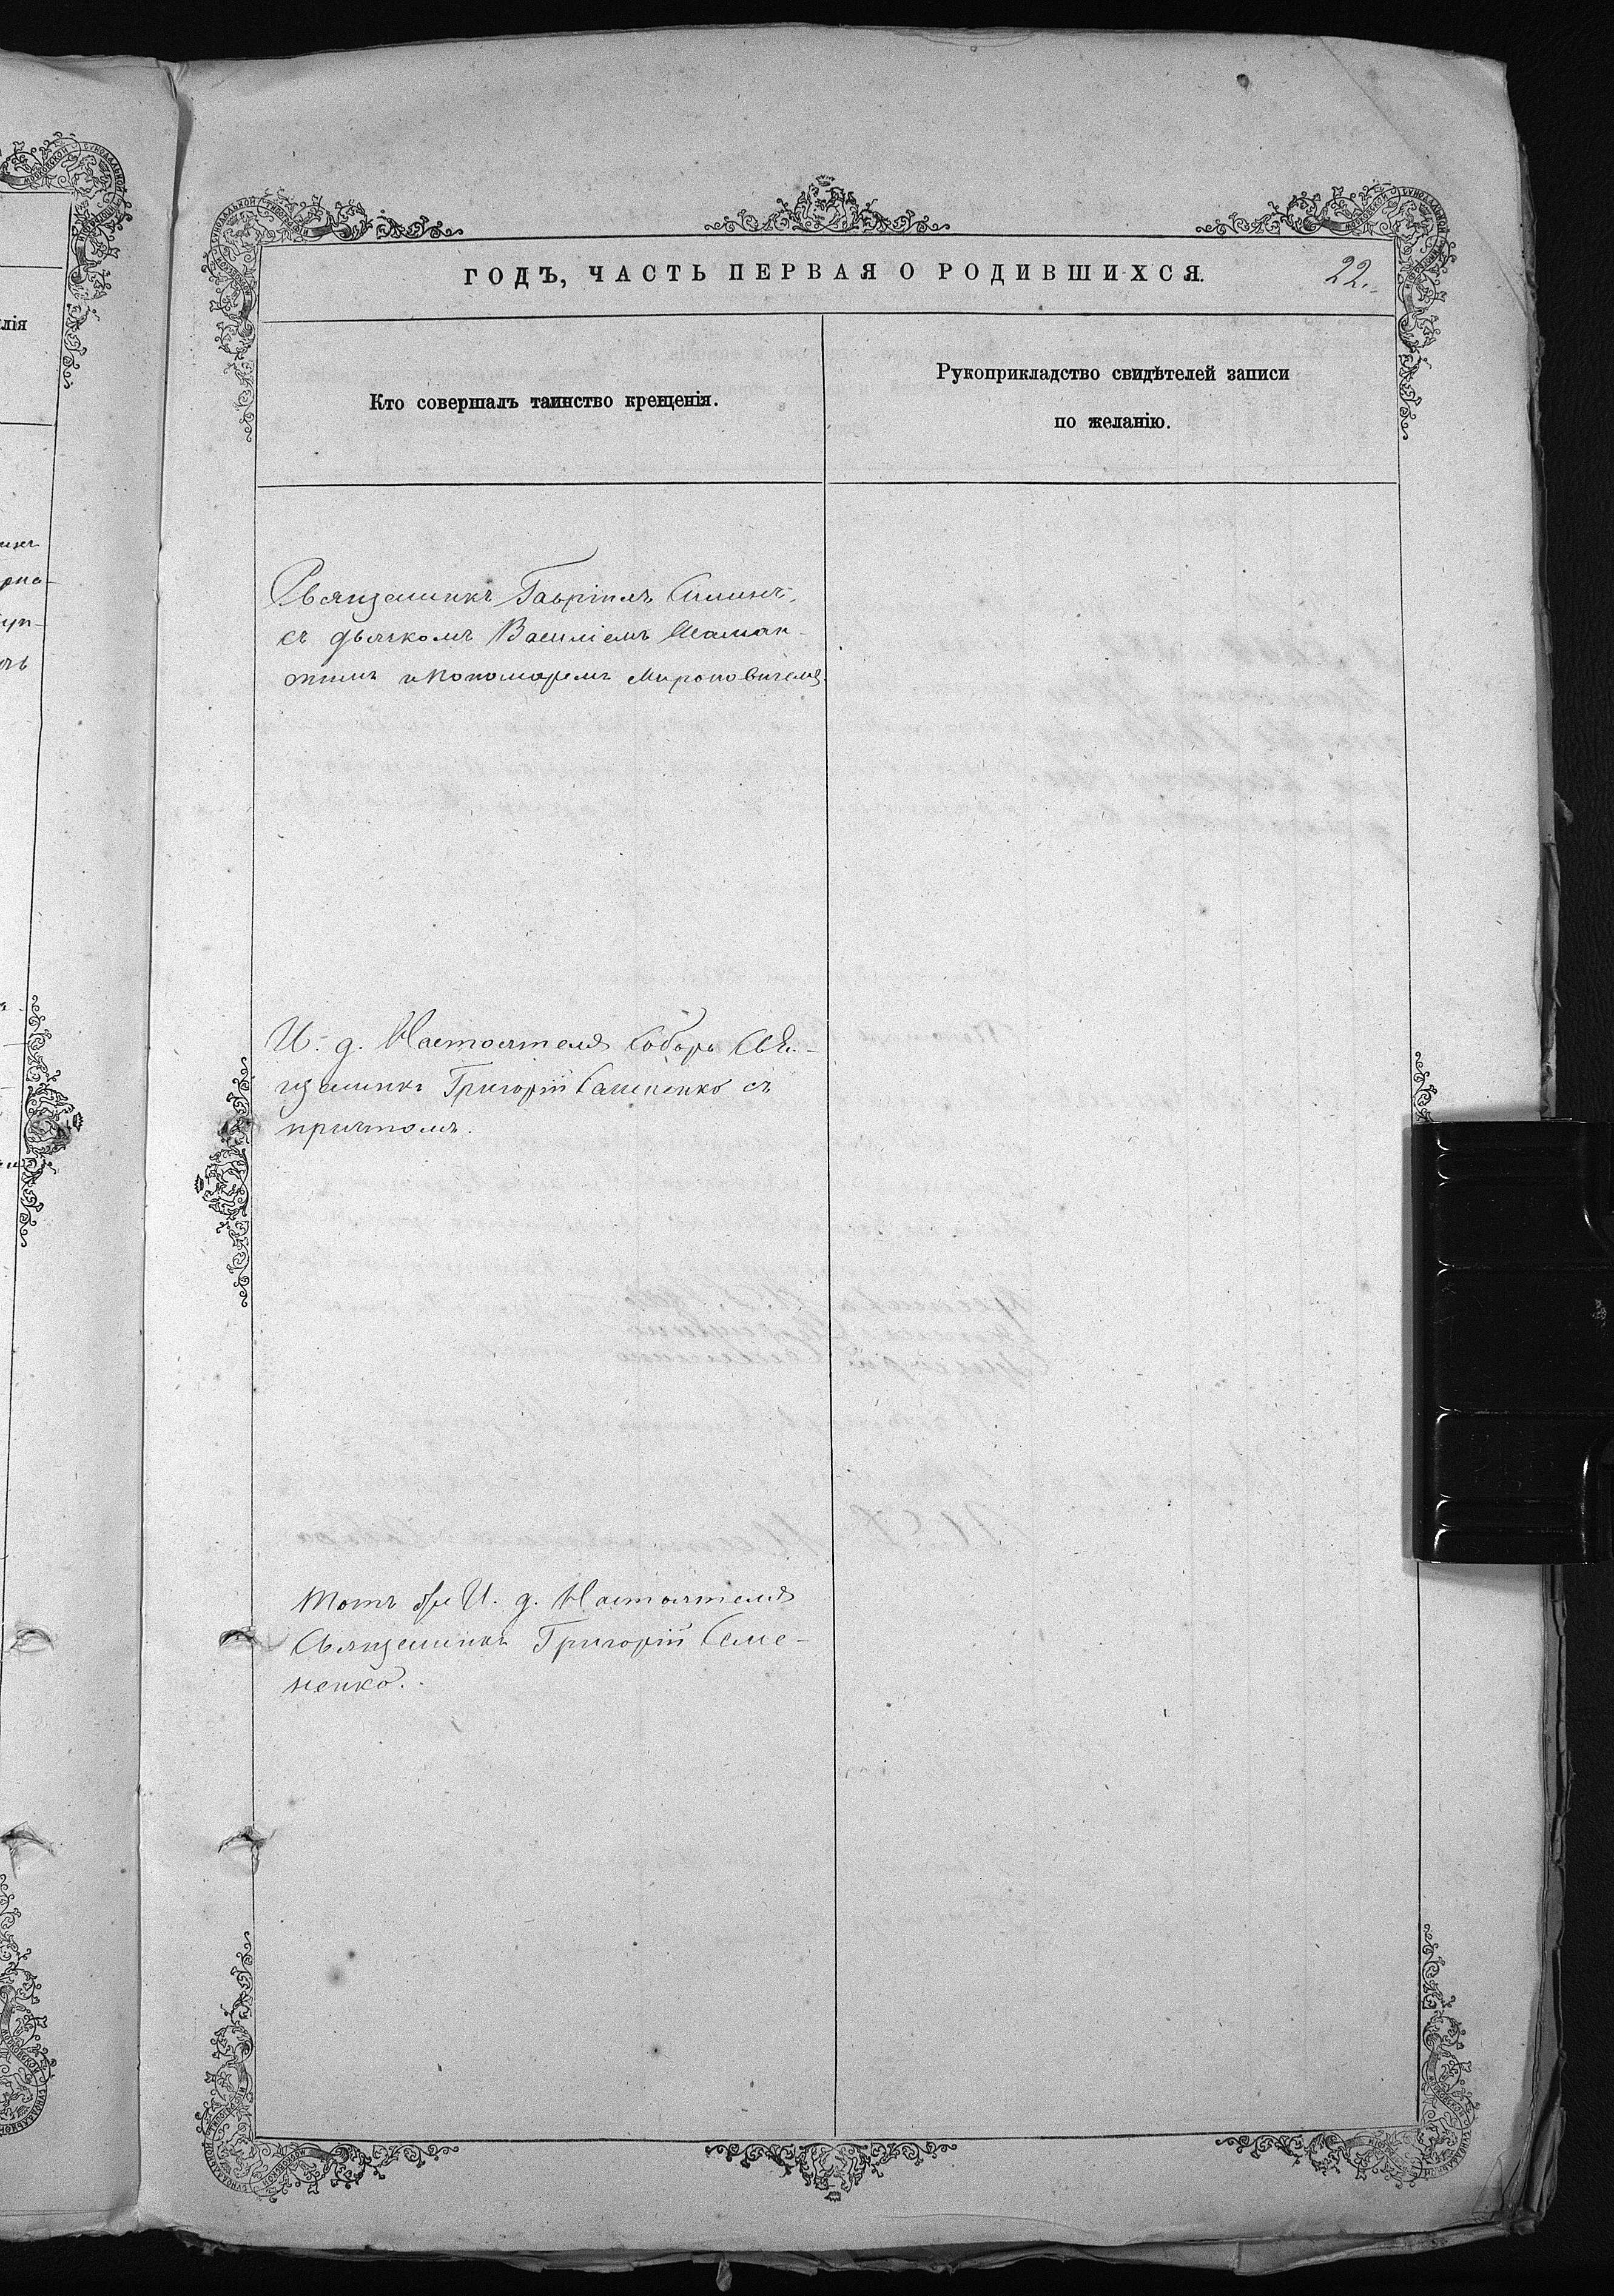 ГОДЪ, ЧАСТЬ ПЕРВАЯ О РОДИВШИХСЯ.
22.
Кто совершалъ таинство крещенія.
Рукоприкладство свидѣтелей записи
по желанію.
Священникъ Гавріилъ
съ дьячкомъ Василіемъ
и Пономаремъ Мироновичемъ
И. д. Настоятеля Собора Свя-
щенникъ Григорій Семененко съ
причтомъ.
Тотъ же И. д. Настоятеля
Священникъ Григорій Семе-
ненко.